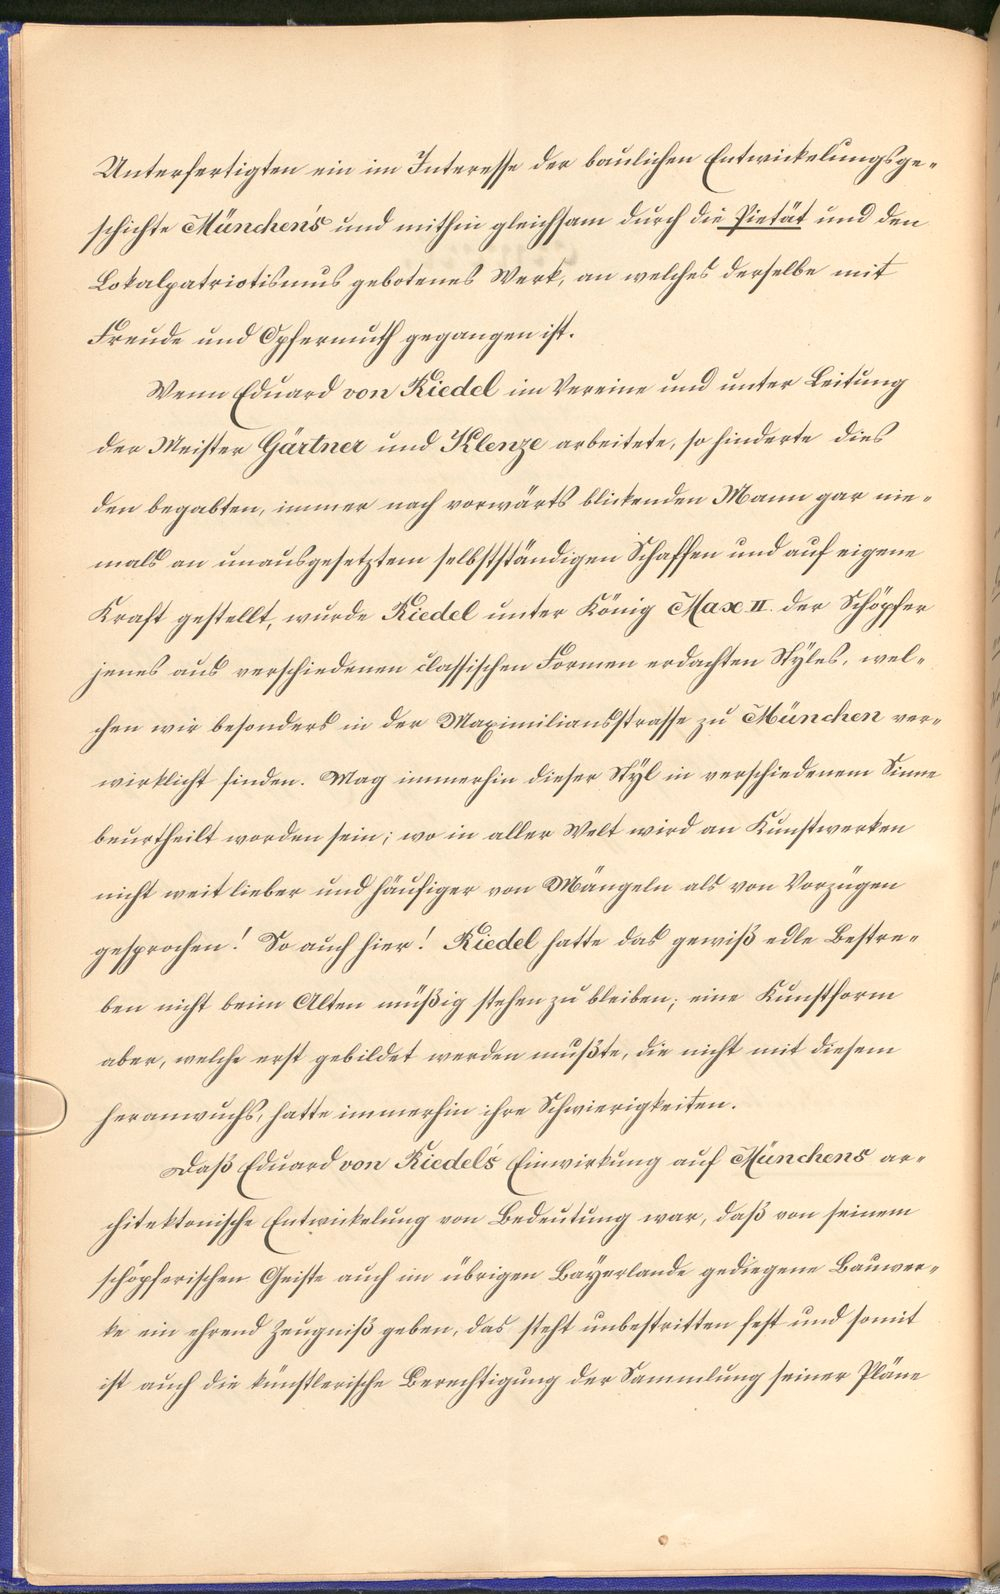 Unterfertigten ein im Interesse der baulichen Entwickelungsge-
schichte München's und mithin gleichsam durch die Pietät und den
Lokalpatriotismus gebotenes Werk, an welches derselbe mit
Freude und Opfermuth gegangen ist.
Wenn Eduard von Riedel im Vereine und unter Leitung
der Meister Gärtner und Klenze arbeitete, so hinderte dies
den begabten, immer nach vorwärts blickenden Mann gar nie-
mals an unausgesetztem selbstständigen Schaffen und auf eigene
Kraft gestellt, wurde Riedel unter König Max II. der Schöpfer
jenes aus verschiedenen classischen Formen erdachten Styles, wel-
chen wir besonders in der Maximiliansstrasse zu München ver-
wirklicht finden. Mag immerhin dieser Styl in verschiedenem Sinne
beurtheilt worden sein; wo in aller Welt wird an Kunstwerken
nicht weit lieber und häufiger von Mängeln als von Vorzügen
gesprochen! So auch hier! Riedel hatte das gewiß edle Bestre-
ben nicht beim Alten müßig stehen zu bleiben; eine Kunstform
aber, welche erst gebildet werden mußte, die nicht mit diesem
heranwuchs, hatte immerhin ihre Schwierigkeiten.
Daß Eduard von Riedel's Einwirkung auf Münchens ar-
chitektonische Entwickelung von Bedeutung war, daß von seinem
schöpferischen Geiste auch im übrigen Bayerlande gediegene Bauwer-
ke ein ehrend Zeugniß geben, das steht unbestritten fest und somit
ist auch die künstlerische Berechtigung der Sammlung seiner Pläne